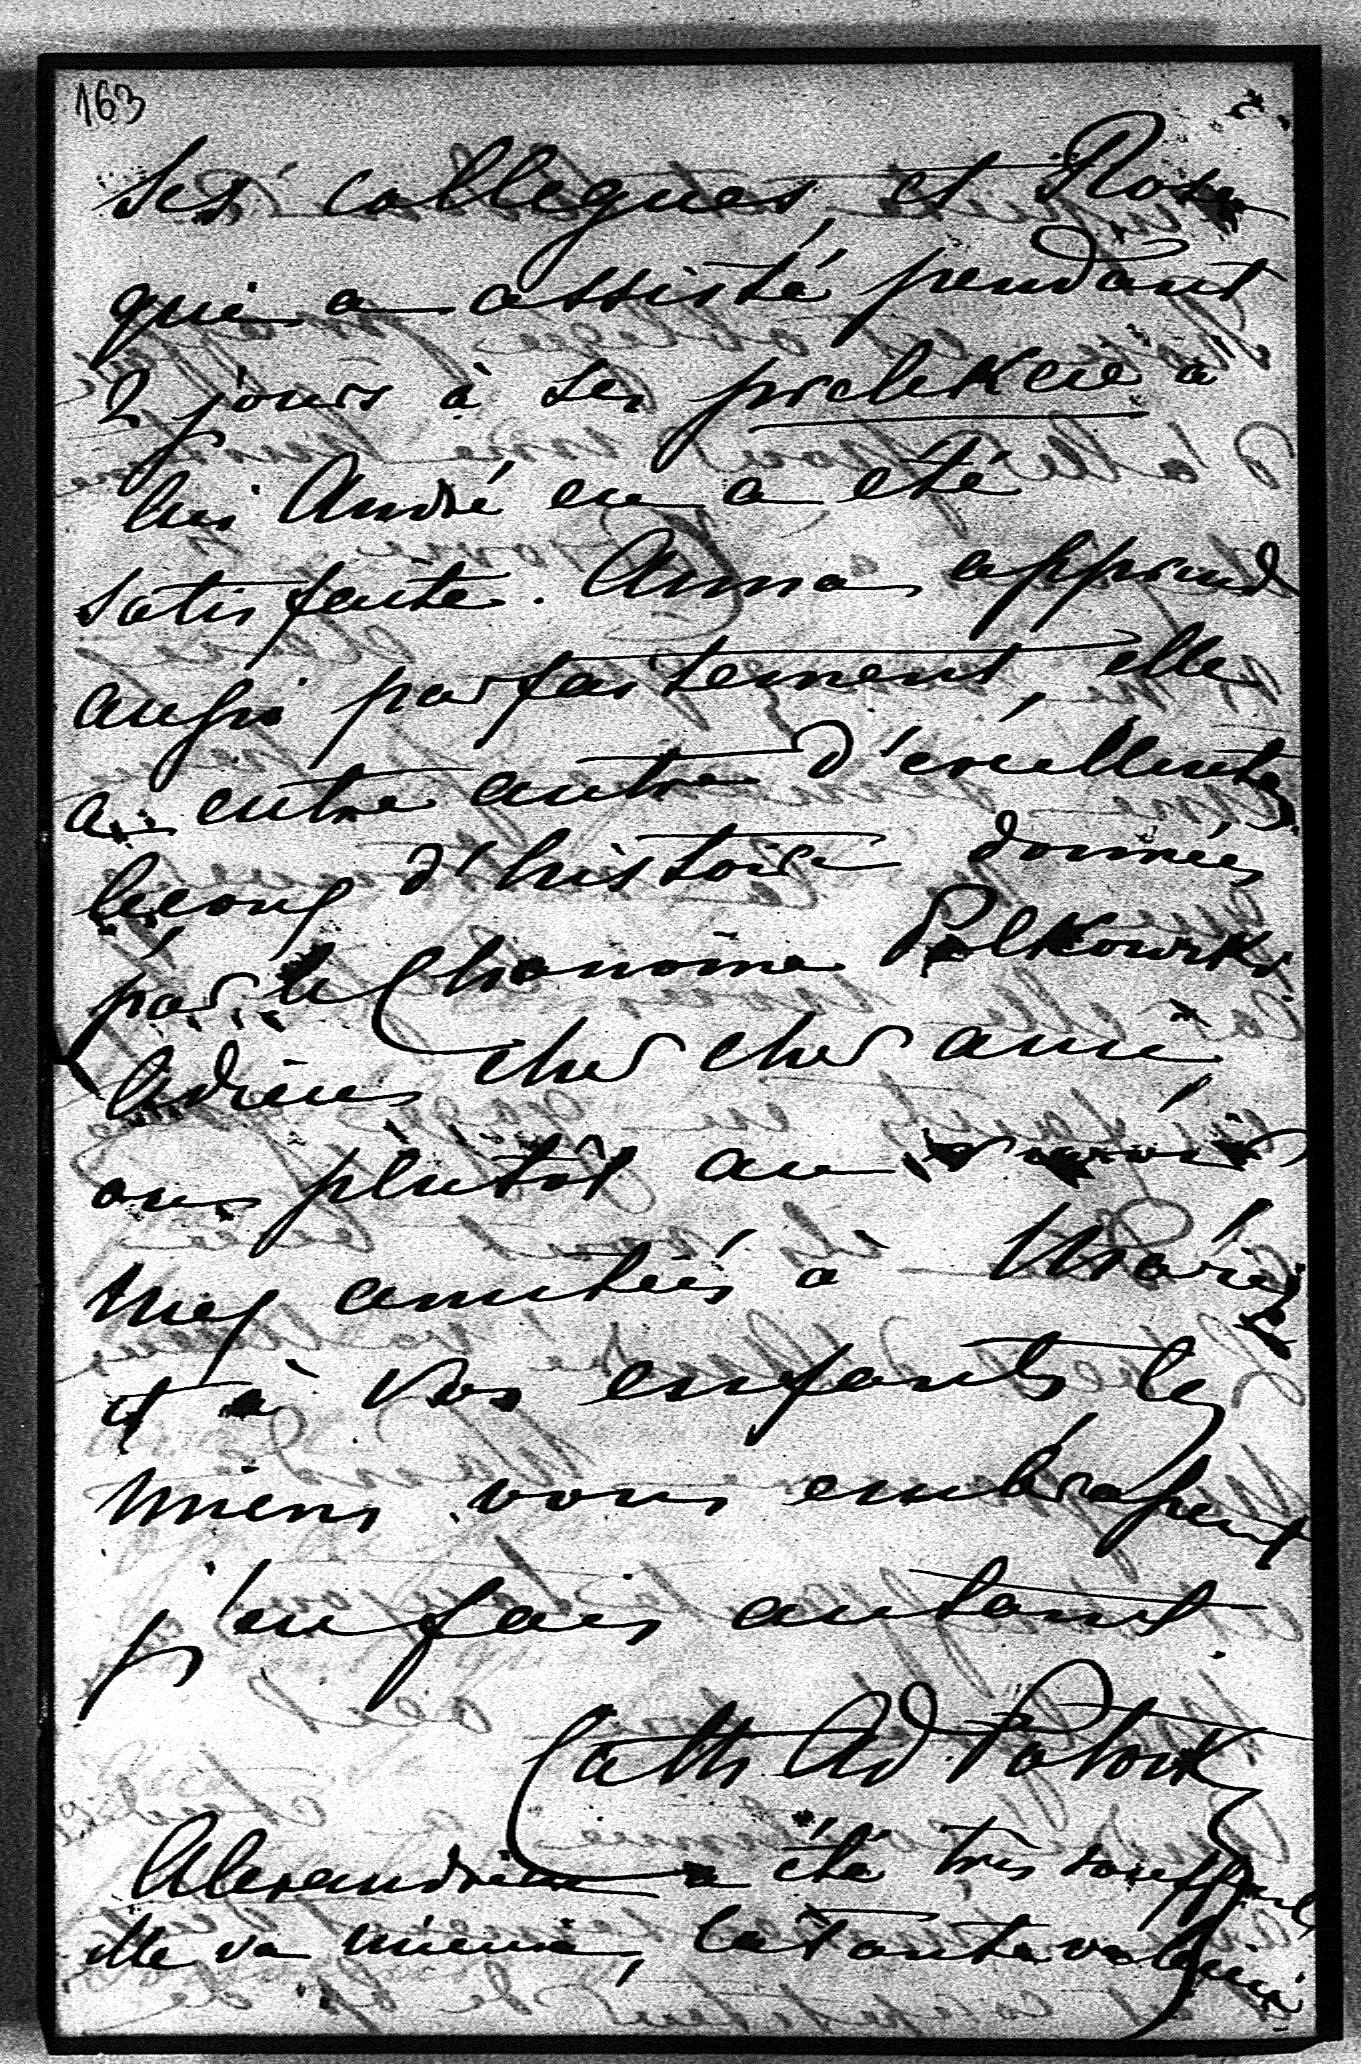 163
ses collegues, et Rosa
qui a assisté pendant
2 jours à ses prelekcie à
lui André en a été
satisfaite. Anna apprend
aussi parfaitement, elle
a entre autre d'excellentes
leçons d'histoire données
par le Chanoine Polkowski
adieu cher cher ami,
ou plutôt au revoir
mes amitiés à Marie
et à vos enfants les
miens vous embrassent
j'en fais autant.
Cath Ad. Potocka
Alexandrine a été très souffrante
elle va mieux, la tante va